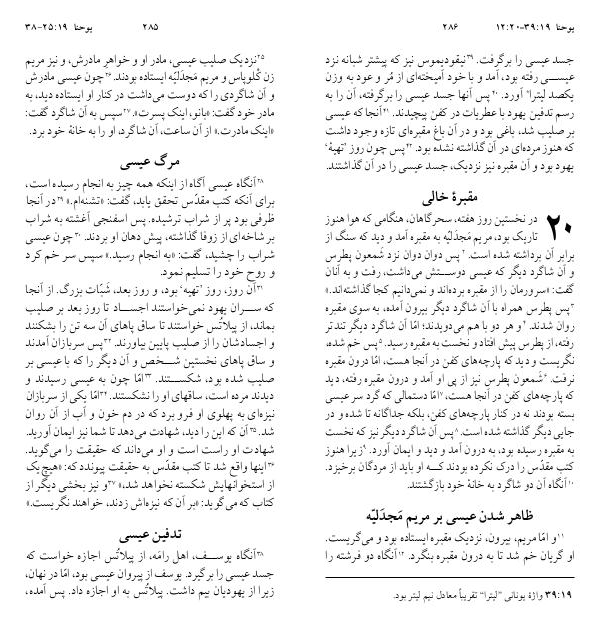 یوحنا ۲۵:۱۹-۳۸
۲۸۵
۲۵نزدیک صلیب عیسی، مادر او و خواهر مادرش، و نیز مریم
زن کْلوپاس و مریم مَجدَلیّه ایستاده بودند. ۲۶چون عیسی مادرش
و آن شاگردی را که دوست می‌داشت در کنار او ایستاده دید، به
مادر خود گفت: «بانو، اینک پسرت.» ۲۷سپس به آن شاگرد گفت:
«اینک مادرت.» از آن ساعت، آن شاگرد، او را به خانهٔ خود برد.
مرگ عیسی
۲۸آنگاه عیسی آگاه از اینکه همه چیز به انجام رسیده است،
برای آنکه کتب مقدّس تحقق یابد، گفت: «تشنه‌ام.» ۲۹در آنجا
ظرفی بود پر از شراب ترشیده. پس اسفنجی آغشته به شراب
بر شاخه‌ای از زوفا گذاشته، پیش دهان او بردند. ۳۰چون عیسی
شراب را چشید، گفت: «به انجام رسید.» سپس سر خم کرد
و روح خود را تسلیم نمود.
۳۱آن روز، روز ’تهیه‘ بود، و روز بعد، شَبّات بزرگ. از آنجا
که سران یهود نمی‌خواستند اجساد تا روز بعد بر صلیب
بماند، از پیلاتُس خواستند تا ساق پاهای آن سه تن را بشکنند
و اجسادشان را از صلیب پایین بیاورند. ۳۲پس سربازان آمدند
و ساق پاهای نخستین شخص و آن دیگر را که با عیسی بر
صلیب شده بود، شکستند. ۳۳امّا چون به عیسی رسیدند و
دیدند مرده است، ساقهای او را نشکستند. ۳۴امّا یکی از سربازان
نیزه‌ای به پهلوی او فرو برد که در دم خون و آب از آن روان
شد. ۳۵آن که این را دید، شهادت می‌دهد تا شما نیز ایمان آورید.
شهادت او راست است و او می‌داند که حقیقت را می‌گوید.
۳۶اینها واقع شد تا کتب مقدّس به حقیقت پیوندد که: «هیچ‌یک
از استخوانهایش شکسته نخواهد شد،» ۳۷و نیز بخشی دیگر از
کتاب که می‌گوید: «بر آن که نیزه‌اش زدند، خواهند نگریست.»
تدفین عیسی
۳۸آنگاه یوسف، اهل رامَه، از پیلاتُس اجازه خواست که
جسد عیسی را برگیرد. یوسف از پیروان عیسی بود، امّا در نهان،
زیرا از یهودیان بیم داشت. پیلاتُس به او اجازه داد. پس آمده،
۲۸۶
یوحنا ۳۹:۱۹-۱۲:۲۰
جسد عیسی را برگرفت. ۳۹نیقودیموس نیز که پیشتر شبانه نزد
عیسی رفته بود، آمد و با خود آمیخته‌ای از مُر و عود به وزن
یکصد لیترا* آورد. ۴۰پس آنها جسد عیسی را برگرفته، آن را به
رسم تدفین یهود با عطریات در کفن پیچیدند. ۴۱آنجا که عیسی
بر صلیب شد، باغی بود و در آن باغ مقبره‌ای تازه وجود داشت
که هنوز مرده‌ای در آن گذاشته نشده بود. ۴۲پس چون روز ’تهیهٔ‘
یهود بود و آن مقبره نیز نزدیک، جسد عیسی را در آن گذاشتند.
مقبرهٔ خالی
۲۰ در نخستین روز هفته، سحرگاهان، هنگامی که هوا هنوز
تاریک بود، مریم مَجدَلیّه به مقبره آمد و دید که سنگ از
برابر آن برداشته شده است. ۲پس دوان دوان نزد شَمعون پطرس
و آن شاگرد دیگر که عیسی دوستش می‌داشت، رفت و به آنان
گفت: «سرورمان را از مقبره برده‌اند و نمی‌دانیم کجا گذاشته‌اند.»
۳پس پطرس همراه با آن شاگرد دیگر بیرون آمده، به سوی مقبره
روان شدند. ۴و هر دو با هم می‌دویدند؛ امّا آن شاگرد دیگر تندتر
رفته، از پطرس پیش افتاد و نخست به مقبره رسید. ۵پس خم شده،
نگریست و دید که پارچه‌های کفن در آنجا هست، امّا درون مقبره
نرفت. ۶شَمعون پطرس نیز از پی او آمد و درون مقبره رفته، دید
که پارچه‌های کفن در آنجا هست، ۷امّا دستمالی که گرد سر عیسی
بسته بودند نه در کنار پارچه‌های کفن، بلکه جداگانه تا شده و در
جایی دیگر گذاشته شده است. ۸پس آن شاگرد دیگر نیز که نخست
به مقبره رسیده بود، به درون آمد و دید و ایمان آورد. ۹زیرا هنوز
کتب مقدّس را درک نکرده بودند که او باید از مردگان برخیزد.
۱۰آنگاه آن دو شاگرد به خانهٔ خود بازگشتند.
ظاهر شدن عیسی بر مریم مَجدَلیّه
۱۱و امّا مریم، بیرون، نزدیک مقبره ایستاده بود و می‌گریست.
او گریان خم شد تا به درون مقبره بنگرد. ۱۲آنگاه دو فرشته را
۳۹:۱۹ واژهٔ یونانی "لیترا" تقریباً معادل نیم لیتر بود.